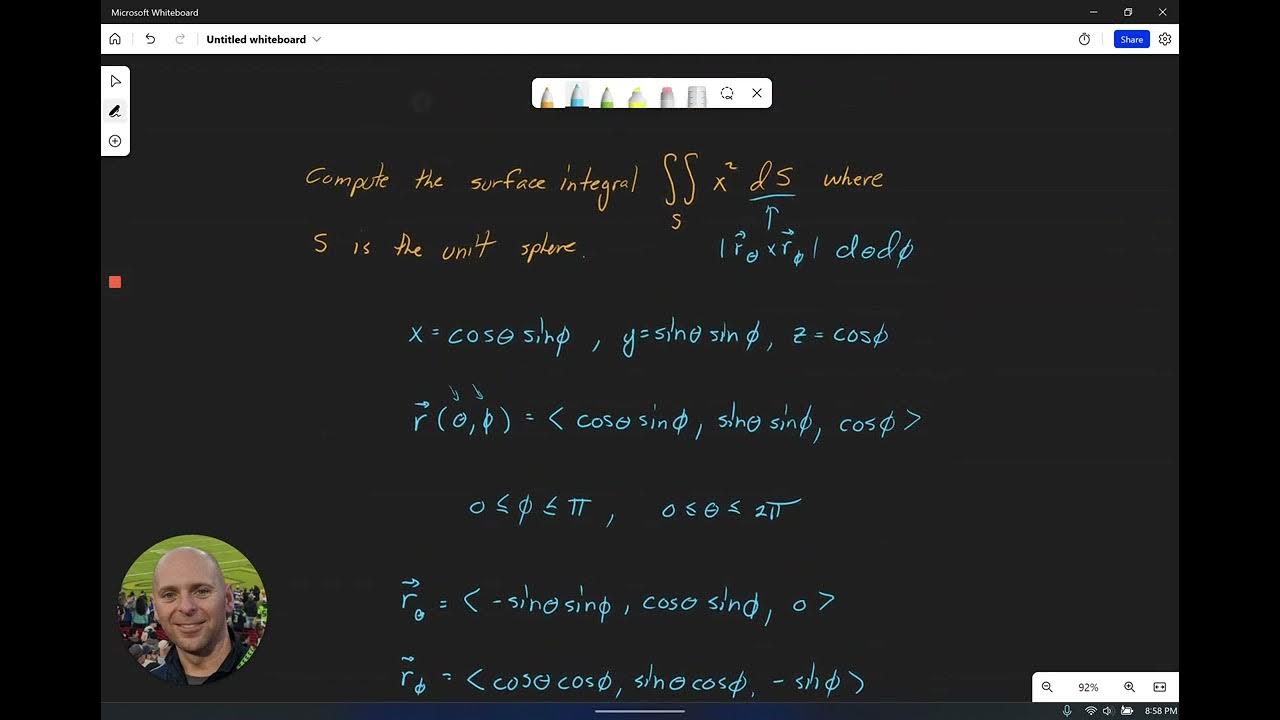 Microsoft Whiteboard
Untitled whiteboard
Share
Compute the surface integral ∬_S x² dS where
↑
S is the unit sphere. |r⃗_θ × r⃗_ϕ| dθdϕ
x = cosθ sinϕ , y = sinθ sinϕ, z = cosϕ
r⃗(θ,ϕ) = < cosθ sinϕ, sinθ sinϕ, cosϕ >
0 ≤ ϕ ≤ π , 0 ≤ θ ≤ 2π
r⃗_θ = < -sinθ sinϕ , cosθ sinϕ, 0 >
r⃗_ϕ = < cosθ cosϕ, sinθ cosϕ, - sinϕ >
92%
8:58 PM